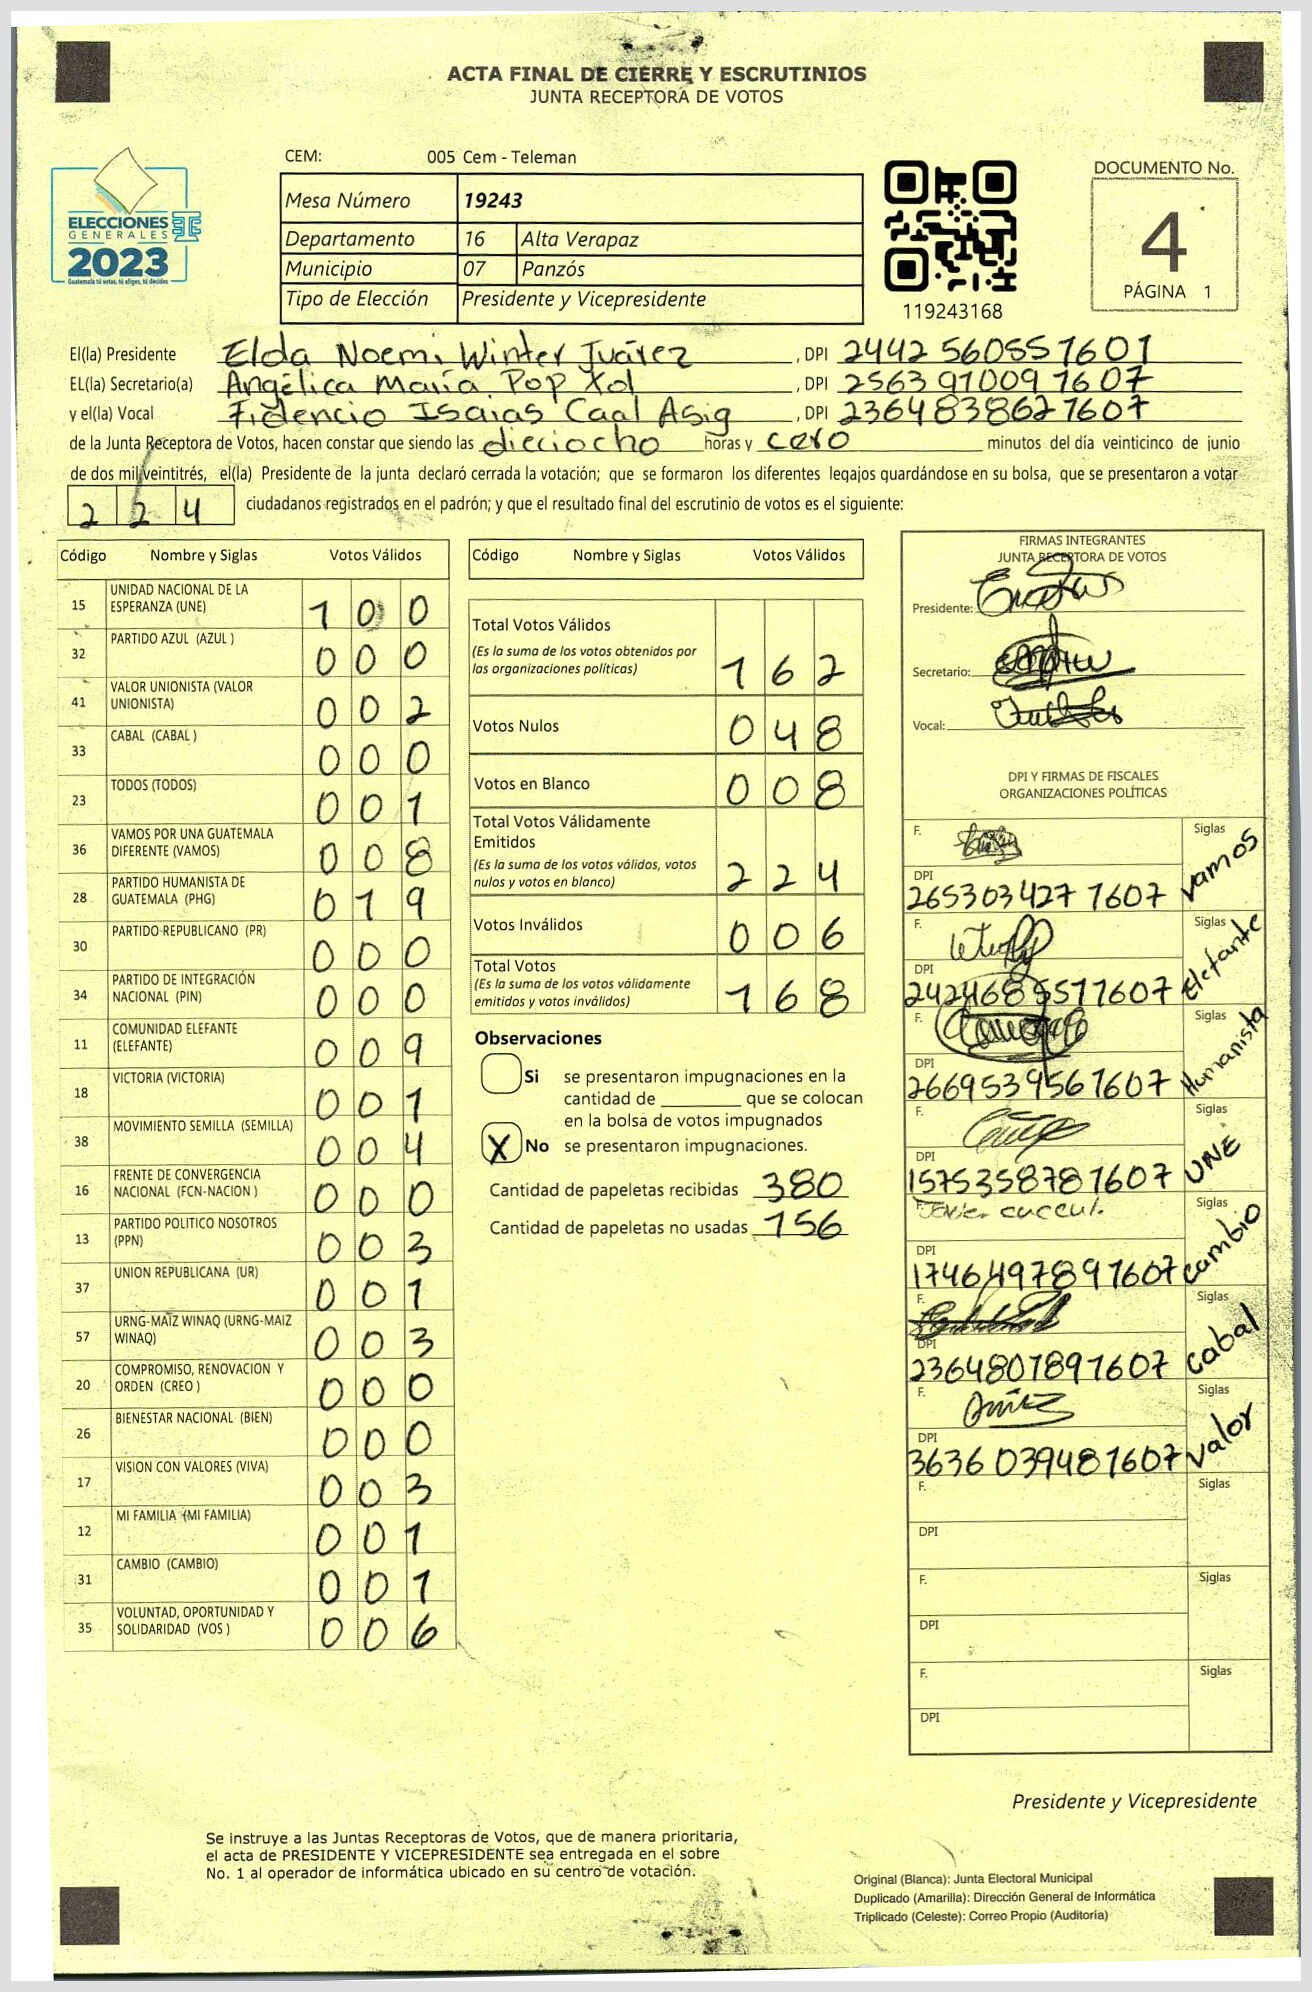 ACTA FINAL DE CIERRE Y ESCRUTINIOS
JUNTA RECEPTORA DE VOTOS
CEM: 005 Cem - Teleman
ELECCIONES
GENERALES
2023
Guatemala tú votas, tú eliges, tú decides
Mesa Número 19243
Departamento 16 Alta Verapaz
Municipio 07 Panzós
Tipo de Elección Presidente y Vicepresidente
119243168
DOCUMENTO No.
4
PÁGINA 1
El(la) Presidente Elda Noemi Winter Juárez , DPI 2442 56055 1601
EL(la) Secretario(a) Angélica María Pop Xol , DPI 2563 91009 1607
y el(la) Vocal Fidencio Isaias Caal Asig , DPI 2364838621607
de la Junta Receptora de Votos, hacen constar que siendo las dieciocho horas y cero minutos del día veinticinco de junio
de dos mil veintitrés, el(la) Presidente de la junta declaró cerrada la votación; que se formaron los diferentes legajos guardándose en su bolsa, que se presentaron a votar
224 ciudadanos registrados en el padrón; y que el resultado final del escrutinio de votos es el siguiente:
Código Nombre y Siglas Votos Válidos
15 UNIDAD NACIONAL DE LA ESPERANZA (UNE) 100
32 PARTIDO AZUL (AZUL ) 000
41 VALOR UNIONISTA (VALOR UNIONISTA) 002
33 CABAL (CABAL ) 000
23 TODOS (TODOS) 001
36 VAMOS POR UNA GUATEMALA DIFERENTE (VAMOS) 008
28 PARTIDO HUMANISTA DE GUATEMALA (PHG) 019
30 PARTIDO REPUBLICANO (PR) 000
34 PARTIDO DE INTEGRACIÓN NACIONAL (PIN) 000
11 COMUNIDAD ELEFANTE (ELEFANTE) 009
18 VICTORIA (VICTORIA) 001
38 MOVIMIENTO SEMILLA (SEMILLA) 004
16 FRENTE DE CONVERGENCIA NACIONAL (FCN-NACION ) 000
13 PARTIDO POLITICO NOSOTROS (PPN) 003
37 UNION REPUBLICANA (UR) 001
57 URNG-MAIZ WINAQ (URNG-MAIZ WINAQ) 003
20 COMPROMISO, RENOVACION Y ORDEN (CREO ) 000
26 BIENESTAR NACIONAL (BIEN) 000
17 VISION CON VALORES (VIVA) 003
12 MI FAMILIA (MI FAMILIA) 001
31 CAMBIO (CAMBIO) 001
35 VOLUNTAD, OPORTUNIDAD Y SOLIDARIDAD (VOS ) 006
Código Nombre y Siglas Votos Válidos
Total Votos Válidos
(Es la suma de los votos obtenidos por
las organizaciones políticas) 162
Votos Nulos 048
Votos en Blanco 008
Total Votos Válidamente
Emitidos
(Es la suma de los votos válidos, votos
nulos y votos en blanco) 224
Votos Inválidos 006
Total Votos
(Es la suma de los votos válidamente
emitidos y votos inválidos) 168
Observaciones
Si se presentaron impugnaciones en la
cantidad de ________ que se colocan
en la bolsa de votos impugnados
X No se presentaron impugnaciones.
Cantidad de papeletas recibidas 380
Cantidad de papeletas no usadas 156
FIRMAS INTEGRANTES
JUNTA RECEPTORA DE VOTOS
Presidente:
Secretario:
Vocal:
DPI Y FIRMAS DE FISCALES
ORGANIZACIONES POLÍTICAS
F. Siglas
DPI
265303427 1607 Vamos
F. Siglas
DPI
2424685511607 Elefante
F. Siglas
DPI
2669539561607 Humanista
F. Siglas
DPI
1575358781607 UNE
F. Siglas
DPI
1746497891607 cambio
F. Siglas
DPI
2364801891607 cabal
F. Siglas
DPI
3636 039481607 valor
F. Siglas
DPI
F. Siglas
DPI
F. Siglas
DPI
Presidente y Vicepresidente
Se instruye a las Juntas Receptoras de Votos, que de manera prioritaria,
el acta de PRESIDENTE Y VICEPRESIDENTE sea entregada en el sobre
No. 1 al operador de informática ubicado en su centro de votación.
Original (Blanca): Junta Electoral Municipal
Duplicado (Amarilla): Dirección General de Informática
Triplicado (Celeste): Correo Propio (Auditoría)